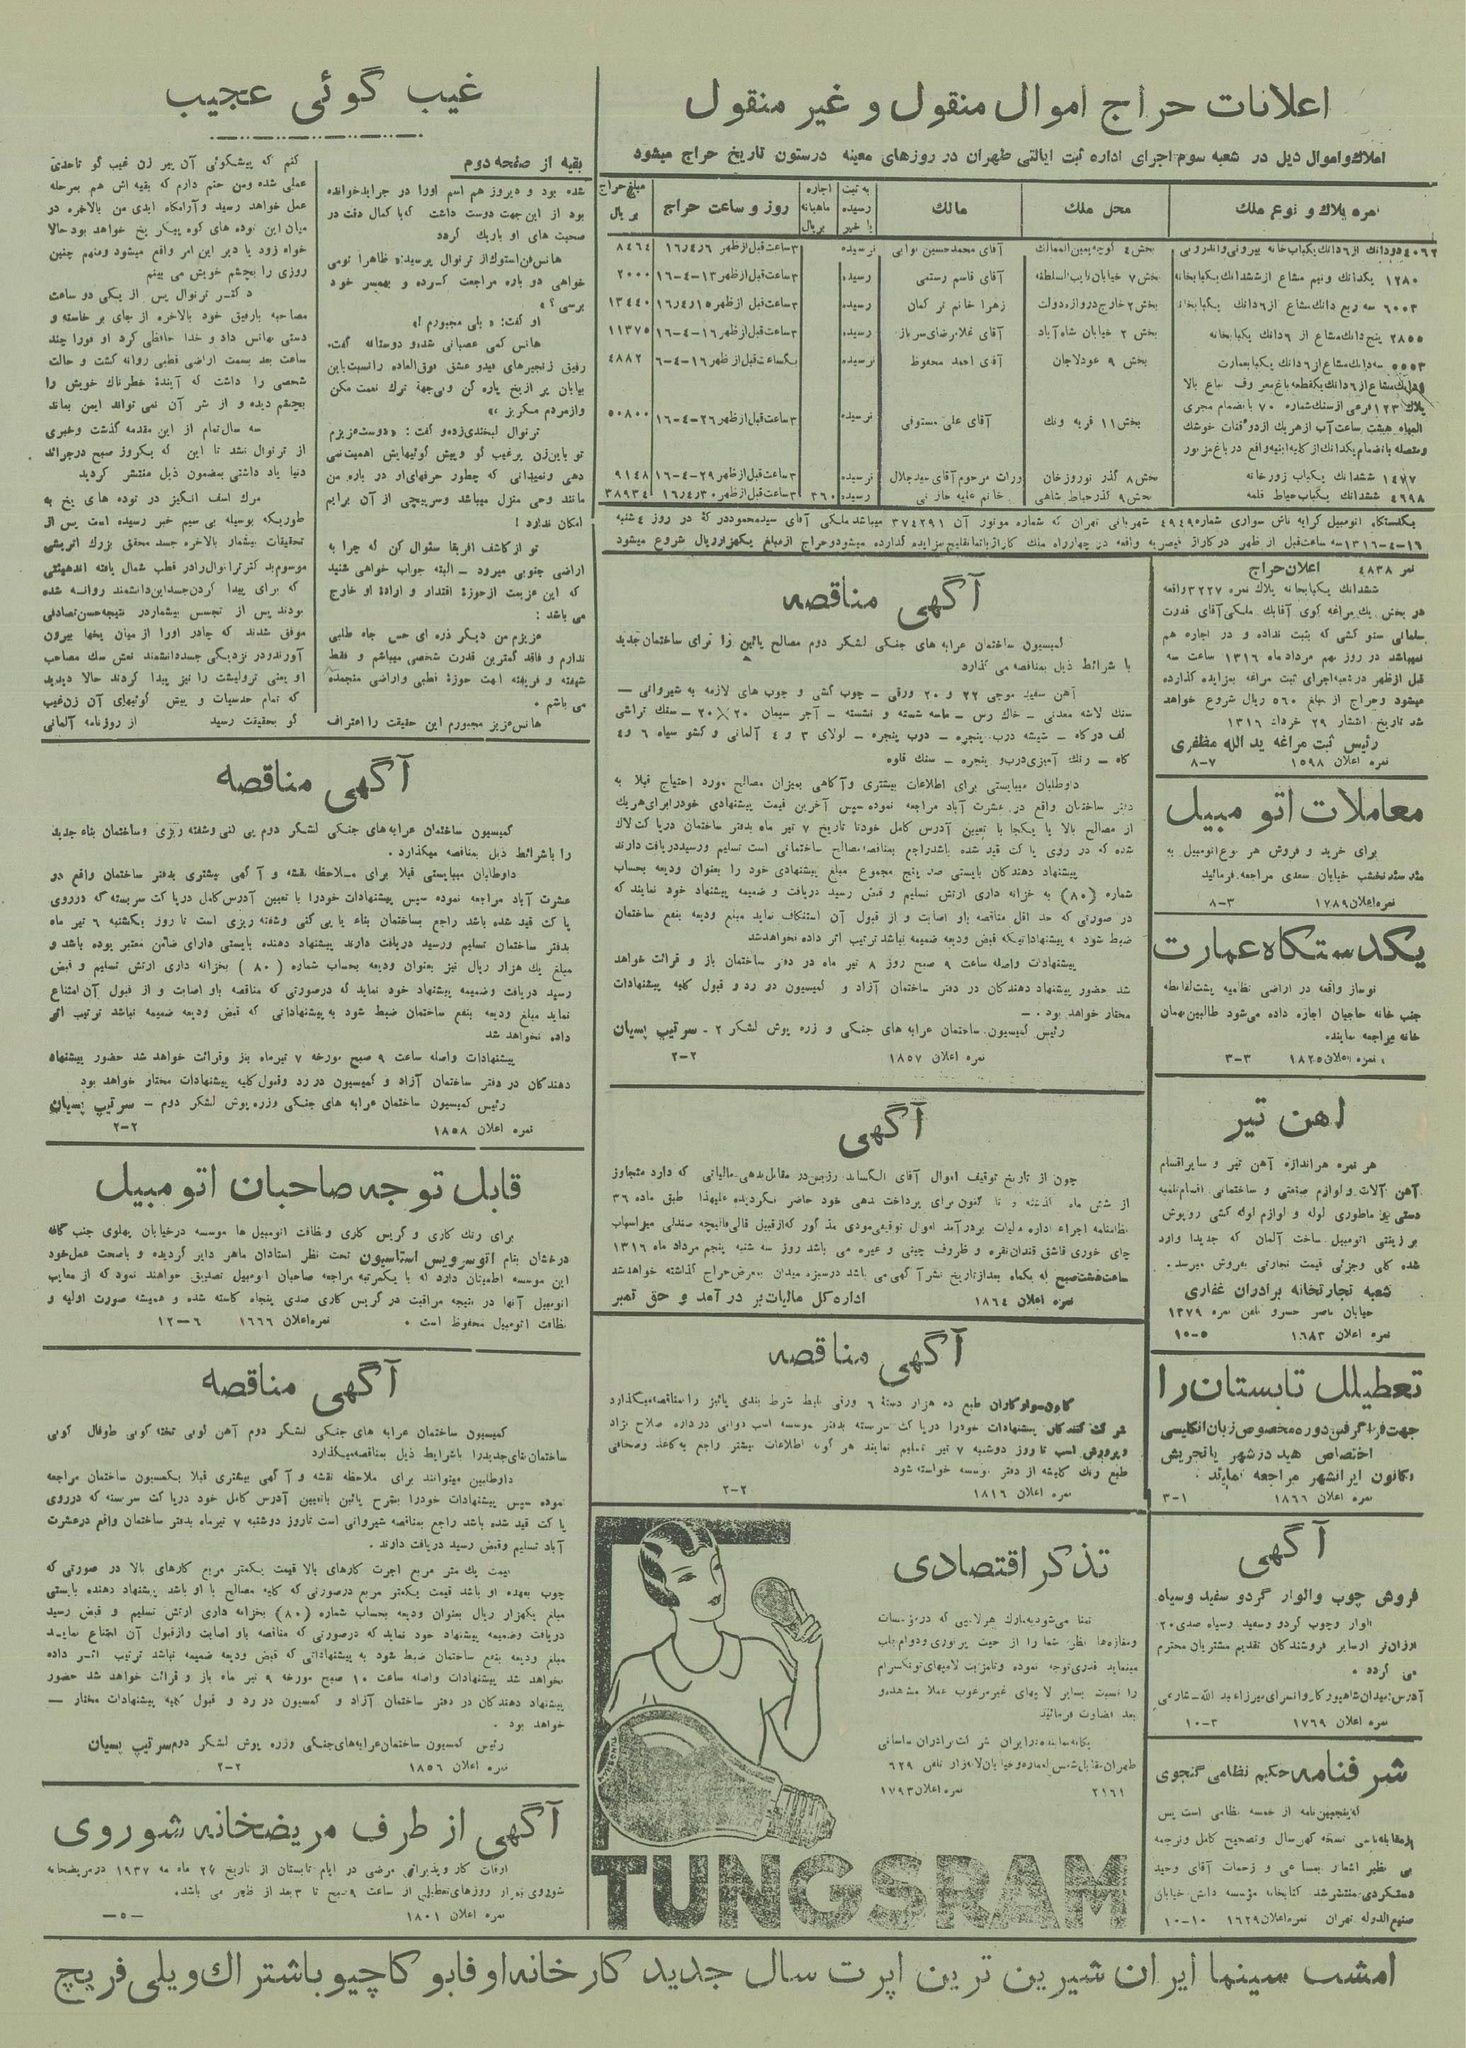 اعلانات حراج اموال منقول و غیر منقول
املاک و اموال ذیل در شعبه سوم اجرای اداره ثبت ایالتی طهران در روزهای معینه درستون تاریخ حراج میشود
نمره پلاک و نوع ملک
محل ملک
مالک
به ثبت رسیده یا خیر
اجاره ماهیانه بریال
روز و ساعت حراج
مبلغ حراج بریال
آقای محمدحسین نوابی نرسیده ۳ساعت قبل از ظهر ۱۶٫۴٫۶ ۸۴۶۴
۱۲۸۰ یکدانک و نیم مشاع از ششدانک یکبابخانه بخش ۷ خیابان نایب السلطنه آقای قاسم رستمی رسیده ۳ساعت قبل از ظهر ۱۳-۴-۱۶ ۲۰۰۰
۶۰۰۳ سه ربع دانک مشاع از ۶دانک یکبابخانه بخش ۲ خارج دروازه دولت زهرا خانم ترکمان رسیده ۳ساعت قبل از ظهر ۱۵٫۴٫۱۶ ۱۳۴۴۰
۲۸۵۵ پنج دانک مشاع از ۶دانک یکبابخانه بخش ۲ خیابان شاه آباد آقای غلامرضای سرباز رسیده ۳ساعت قبل از ظهر ۱۶-۴-۱۶ ۱۱۳۷۵
۵۵۵۳ سه دانک مشاع از ۶دانک یکبابعمارت بخش ۹ عودلاجان آقای احمد محفوظ نرسیده یکساعت قبل از ظهر ۱۶-۴-۶ ۴۸۸۲
بخش ۱۱ قریه ونک آقای علی مستوفی نرسیده ۳ساعت قبل از ظهر ۲۶-۴-۱۶ ۵۰۸۰۰
۱۴۷۷ ششدانک یکباب زورخانه بخش ۸ گذر نوروزخان وراث مرحوم آقای سیدجلال نرسیده ۳ساعت قبل از ظهر ۲۹-۴-۱۶ ۹۱۴۸
۴۶۹۸ ششدانک یکباب حیاط بخش ۹ گذر حیاط شاهی رسیده ۳۶۰ ۳ساعت قبل از ظهر ۳۰٫۴٫۱۶ ۳۸۹۳۴
نمره ۴۸۳۸ اعلان حراج
ششدانک یکبابخانه پلاک نمره ۳۲۲۷ واقعه
در بخش یک مراغه کوی آقابک ملکی آقای قدرت
سلمانی سنو کشی که بثبت نداده و در اجاره هم
نمیباشد در روز نهم مرداد ماه ۱۳۱۶ ساعت سه
قبل از ظهر در شعبه اجرای ثبت مراغه بمزایده گذارده
میشود و حراج از مبلغ ۵۶۰ ریال شروع خواهد
شد تاریخ انتشار ۲۹ خرداد ۱۳۱۶
رئیس ثبت مراغه ید الله مظفری
نمره اعلان ۱۵۹۸ ۷-۸
معاملات اتومبیل
برای خرید و فروش هر نوع اتومبیل به
خیابان سعدی مراجعه فرمائید
نمره اعلان ۱۷۸۹ ۳-۸
یکدستگاه عمارت
نوساز واقعه در اراضی نظامیه
جنب خانه حاجبان اجازه داده می‌شود طالبین بهمان
خانه مراجعه نمایند
نمره اعلان ۱۸۲۵ ۳-۳
اهن تیر
هر نمره هر اندازه آهن تیر و سایر اقسام
آهن آلات و لوازم صنعتی و ساختمانی
برزنتی اتومبیل ساخت آلمان که جدیدا وارد
شده کلی و جزئی قیمت تجارتی بفروش میرسد.
شعبه تجارتخانه برادران غفاری
خیابان ناصر خسرو تلفن نمره ۱۳۷۹
نمره اعلان ۱۶۸۳ ۵-۱۰
تعطیلل تابستان را
جهت فرا گرفتن دوره مخصوص زبان انگلیسی
اختصاص هید درشهر یا تجریش
بکانون ایرانشهر مراجعه نمایند.
نمره اعلان ۱۸۶۶ ۱-۳
آگهی
فروش چوب والوار گردو سفید وسیاه
الوار وچوب گردو وسفید وسیاه صدی ۲۰
ارزان‌تر از سایر فروشندگان تقدیم مشتریان محترم
می گردد .
نمره اعلان ۱۷۶۹ ۳-۱۰
شرفنامه حکیم نظامی گنجوی
نسخه کهن سال و تصحیح کامل و ترجمه
اشعار بمساعی و زحمات آقای وحید
دستگردی منتشر شد کتابخانه مؤسسه دانش خیابان
صنیع الدوله تهران نمره اعلان ۱۶۲۹ ۱۰-۱۰
آگهی مناقصه
کمیسیون ساختمان عرابه های جنگی لشگر دوم مصالح پائین را برای ساختمان جدید
با شرائط ذیل بمناقصه می گذارد
آهن سفید موجی ۲۲ و ۲۰ ورقی - چوب کش و چوب های لازمه به شیروانی -
سنک لاشه معدنی - خاک رس - ماسه شسته و نشسته - آجر سیمان ۲۰×۲۰ - سنک تراشی
کف درگاه - شیشه درب پنجره - درب پنجره - لولای ۳ و ۴ آلمانی و کشو سیاه ۶ و ۴
کاه - رنک آمیزی درب و پنجره - سنک قلوه
داوطلبان میبایستی برای اطلاعات بیشتری و آگاهی بمیزان مصالح مورد احتیاج قبلا به
دفتر ساختمان واقع در عشرت آباد مراجعه نموده سپس آخرین قیمت پیشنهادی خود را برای هریک
از مصالح بالا یا یکجا با تعیین آدرس کامل خود تا تاریخ ۷ تیر ماه بدفتر ساختمان در پاکت لاک
شده که در روی پاکت قید شده باشد راجع بمناقصه مصالح ساختمانی است تسلیم و رسید دریافت دارند
پیشنهاد دهندگان بایستی صد پنج مجموع مبلغ پیشنهادی خود را بعنوان ودیعه بحساب
شماره (۸۰) به خزانه داری ارتش تسلیم و قبض رسید دریافت و ضمیمه پیشنهاد خود نمایند که
در صورتی که حد اقل مناقصه باو اصابت و از قبول آن استنکاف نماید مبلغ ودیعه بنفع ساختمان
ضبط شود به پیشنهاداتیکه قبض ودیعه ضمیمه نباشد ترتیب اثر داده نخواهد شد
پیشنهادات واصله ساعت ۹ صبح روز ۸ تیر ماه در دفتر ساختمان باز و قرائت خواهد
شد حضور پیشنهاد دهندگان در دفتر ساختمان آزاد و کمیسیون در رد و قبول کلیه پیشنهادات
مختار خواهد بود . -
رئیس کمیسیون ساختمان عرابه های جنگی و زره پوش لشگر ۲ - سرتیپ پسیان
نمره اعلان ۱۸۵۷ ۲-۲
آگهی
از شش ماه گذشته و تا کنون برای پرداخت بدهی خود حاضر نگردیده علیهذا طبق ماده ۳۶
چای خوری قاشق قندان نقره و ظروف چینی و غیره می باشد روز سه شنبه پنجم مرداد ماه ۱۳۱۶
ساعت هشت صبح که یکماه بعد از تاریخ نشر آگهی می باشد در سبزه میدان بمعرض حراج گذاشته خواهد شد
نمره اعلان ۱۸۶۴ اداره کل مالیات بر درآمد و حق تمبر
آگهی مناقصه
کانون سوارکاران طبع ده هزار دستهٔ ۶ ورقی بلیط شرط بندی پائیز را بمناقصه میگذارد
و پرورش اسب تا روز دوشنبه ۷ تیر تسلیم نمایند هر گونه اطلاعات بیشتر راجع به کاغذ و صحافی
طبع رنک کلیشه از دفتر موسسه خواسته شود
نمره اعلان ۱۸۱۶ ۲-۲
تذکر اقتصادی
را نسبت بسایر لامپهای غیر مرغوب عملا مشاهده و
بعد قضاوت فرمائید
نمره اعلان ۱۷۹۳ ۲۱۶۱
TUNGSRAM
غیب گوئی عجیب
بقیه از صفحه دوم
شده بود و دیروز هم اسم اورا در جراید خوانده
بود از این جهت دوست داشت که با کمال دقت در
صحبت های او باریک گردد
هانس فن استوک از ترنوال پرسید: ظاهرا تومی
خواهی دو باره مراجعت کرده و بهمسر خود
برسی؟»
او گفت: « بلی مجبورم!»
هانس کمی عصبانی شده و دوستانه گفت.
رفیق زنجیرهای قیدو عشق فوق العاده را نسبت باین
بیابان پر از یخ پاره کن و بی جهة ترک نعمت مکن
و از مردم مگریز »
ترنوال لبخندی زده و گفت : «دوست عزیزم
تو باین زن پر غیب گو و پیش گوئیهایش اهمیت نمی
دهی و نمیدانی که چطور حرفهای او در باره من
مانند وحی منزل میباشد و سرپیچی از آن برایم
امکان ندارد !
تو از کاشف افریقا سئوال کن که چرا به
اراضی جنوبی میرود - البته جواب خواهی شنید
که این عزیمت از حوزهٔ اقتدار و ارادهٔ او خارج
می باشد :
عزیزم من دیگر ذره ای حس جاه طلبی
ندارم و فاقد کمترین قدرت شخصی میباشم و فقط
شیفته و فریفته ابهت حوزهٔ قطبی و اراضی منجمده
می باشم .
هانس عزیز مجبورم این حقیقت را اعتراف
کنم که پیشگوئی آن پیر زن غیب گو تا حدی
عملی شده و من حتم دارم که بقیه اش هم بمرحله
عمل خواهد رسید و آرامگاه ابدی من بالاخره در
میان این توده های کوه پیکر یخ خواهد بود حالا
خواه زود یا دیر این امر واقع میشود و منهم چنین
روزی را بچشم خویش می بینم
دکتر ترنوال پس از یکی دو ساعت
مصاحبه بارفیق خود بالاخره از جای بر خاسته و
دستی بهانس داد و خدا حافظی کرد او فورا چند
ساعت بعد بسمت اراضی قطبی روانه گشت و حالت
شخصی را داشت که آیندهٔ خطرناک خویش را
بچشم دیده و از شر آن نمی تواند ایمن بماند
سه سال تمام از این مقدمه گذشت و خبری
از ترنوال نشد تا این که یکروز صبح در جرائد
دنیا یاد داشتی بمضمون ذیل منتشر گردید
مرک اسف انگیز در توده های یخ به
طوریکه بوسیله بی سیم خبر رسیده است پس از
تحقیقات بیشمار بالاخره جسد محقق بزرک اتریشی
موسوم بدکتر ترانوال را در قطب شمال یافته اند هیئتی
که برای پیدا کردن جسد این دانشمند روانه شده
بودند پس از تجسس بیشمار در نتیجه حسن تصادفی
موفق شدند که چادر اورا از میان یخها بیرون
آورند و در نزدیکی جسد دانشمند نعش سک مصاحب
او یعنی ترولیشت را نیز پیدا کردند حالا دیدید
که تمام حدسیات و پیش گوئیهای آن زن غیب
گو بحقیقت رسید از روزنامه آلمانی
آگهی مناقصه
کمیسیون ساختمان عرابه های جنگی لشگر دوم پی کنی و شفته ریزی و ساختمان بناء جدید
را باشرائط ذیل بمناقصه میگذارد .
داوطلبان میبایستی قبلا برای ملاحظه نقشه و آگهی بیشتری بدفتر ساختمان واقع در
عشرت آباد مراجعه نموده سپس پیشنهادات خودرا با تعیین آدرس کامل در پاکت سربسته که در روی
پاکت قید شده باشد راجع بساختمان بناء یا پی کنی وشفته ریزی است تا روز یکشنبه ۶ تیر ماه
بدفتر ساختمان تسلیم ورسید دریافت دارند پیشنهاد دهنده بایستی دارای ضامن معتبر بوده باشد و
مبلغ یک هزار ریال نیز بعنوان ودیعه بحساب شماره ( ۸۰ ) بخزانه داری ارتش تسلیم و قبض
رسید دریافت وضمیمه پیشنهاد خود نماید که درصورتی که مناقصه باو اصابت و از قبول آن امتناع
نماید مبلغ ودیعه بنفع ساختمان ضبط شود به پیشنهاداتی که قبض ودیعه ضمیمه نباشد ترتیب اثر
داده نخواهد شد
پیشنهادات واصله ساعت ۹ صبح مورخه ۷ تیرماه باز وقرائت خواهد شد حضور پیشنهاد
دهندگان در دفتر ساختمان آزاد و کمیسیون در رد وقبول کلیه پیشنهادات مختار خواهد بود
رئیس کمیسیون ساختمان عرابه های جنگی وزره پوش لشگر دوم - سرتیپ پسیان
نمره اعلان ۱۸۵۸ ۲-۲
قابل توجه صاحبان اتومبیل
برای رنک کاری و گریس کاری و نظافت اتومبیل ها موسسه در خیابان پهلوی جنب کافه
درخشان بنام اتوسرویس استاسیون تحت نظر استادان ماهر دایر گردیده و باصحت عمل خود
این موسسه اطمینان دارد که با یکمرتبه مراجعه صاحبان اتومبیل تصدیق خواهند نمود که از معایب
اتومبیل آنها در نتیجه مراقبت در گریس کاری صدی پنجاه کاسته شده و همیشه صورت اولیه و
نظافت اتومبیل محفوظ است . نمره اعلان ۱۶۶۶ ۶-۱۲
آگهی مناقصه
کمیسیون ساختمان عرابه های جنگی لشگر دوم آهن کوبی تخته کوبی طوفال کوبی
ساختمان های جدید را باشرایط ذیل بمناقصه میگذارد
داوطلبین میتوانند برای ملاحظه نقشه و آگهی بیشتری قبلا بکمیسیون ساختمان مراجعه
نموده سپس پیشنهادات خودرا بشرح پائین باتعیین آدرس کامل خود در پاکت سربسته که درروی
پاکت قید شده باشد راجع بمناقصه شیروانی است تاروز دوشنبه ۷ تیرماه بدفتر ساختمان واقع درعشرت
آباد تسلیم وقبض رسید دریافت دارند .
قیمت یک متر مربع اجرت کارهای بالا قیمت یکمتر مربع کارهای بالا در صورتی که
چوب بعهده او باشد قیمت یکمتر مربع درصورتی که کلیه مصالح با او باشد پیشنهاد دهنده بایستی
مبلغ یکهزار ریال بعنوان ودیعه بحساب شماره (۸۰) بخزانه داری ارتش تسلیم و قبض رسید
دریافت وضمیمه پیشنهاد خود نماید که درصورتی که مناقصه باو اصابت وازقبول آن امتناع نماید
مبلغ ودیعه بنفع ساختمان ضبط شود به پیشنهاداتی که قبض ودیعه ضمیمه نباشد ترتیب اثر داده
نخواهد شد پیشنهادات واصله ساعت ۱۰ صبح مورخه ۹ تیر ماه باز و قرائت خواهد شد حضور
پیشنهاد دهندگان در دفتر ساختمان آزاد و کمیسیون در رد و قبول کلیه پیشنهادات مختار -
خواهد بود .
رئیس کمیسیون ساختمان عرابه های جنگی وزره پوش لشگر دوم سرتیپ پسیان
نمره اعلان ۱۸۵۶ ۲-۲
آگهی از طرف مریضخانه شوروی
اوقات کار وپذیرائی مرضی در ایام تابستان از تاریخ ۲۶ ماه مه ۱۹۳۷ درمریضخانه
شوروی بغیر از روزهای تعطیل از ساعت ۹ صبح تا ۳ بعد از ظهر می باشد.
نمره اعلان ۱۸۰۱ -۵-
امشب سینما ایران شیرین ترین اپرت سال جدید کارخانه اوفا بوکاچیو باشتراک ویلی فریچ